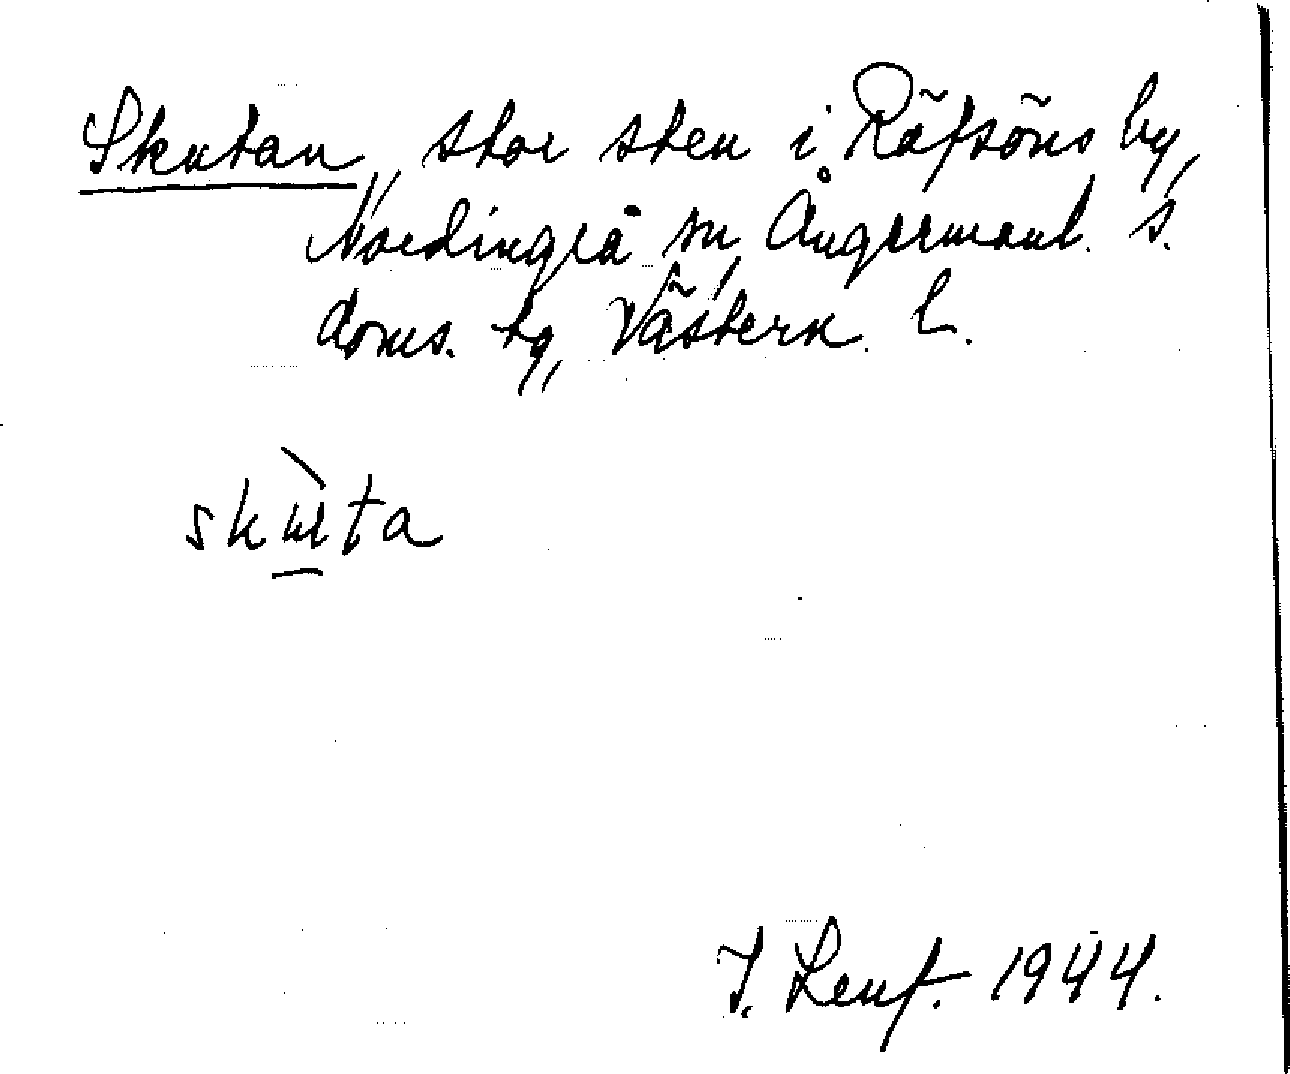 Skutan, stor sten i Räfsöns by,
Nordingrå sn, Ångermanl. s.
doms. tg, Västern. l.
skùta
J. Lenf. 1944.